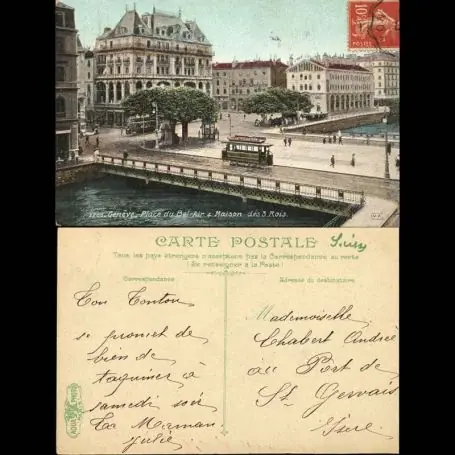 1225. Genève - Place du Bel-Air & Maison des 3 Rois.
10
CARTE POSTALE
Suisse
Tous les pays étrangers n'acceptent pas la Correspondance au recto
(Se renseigner à la Poste)
Correspondance
Adresse du destinataire
Ton Tonton
se promet de
bien de
taquiner
samedi soir
Ta Maman
Julie
Mademoiselle
Chabert André
au Port de
St Gervais
Isère
AQUA PHOTO